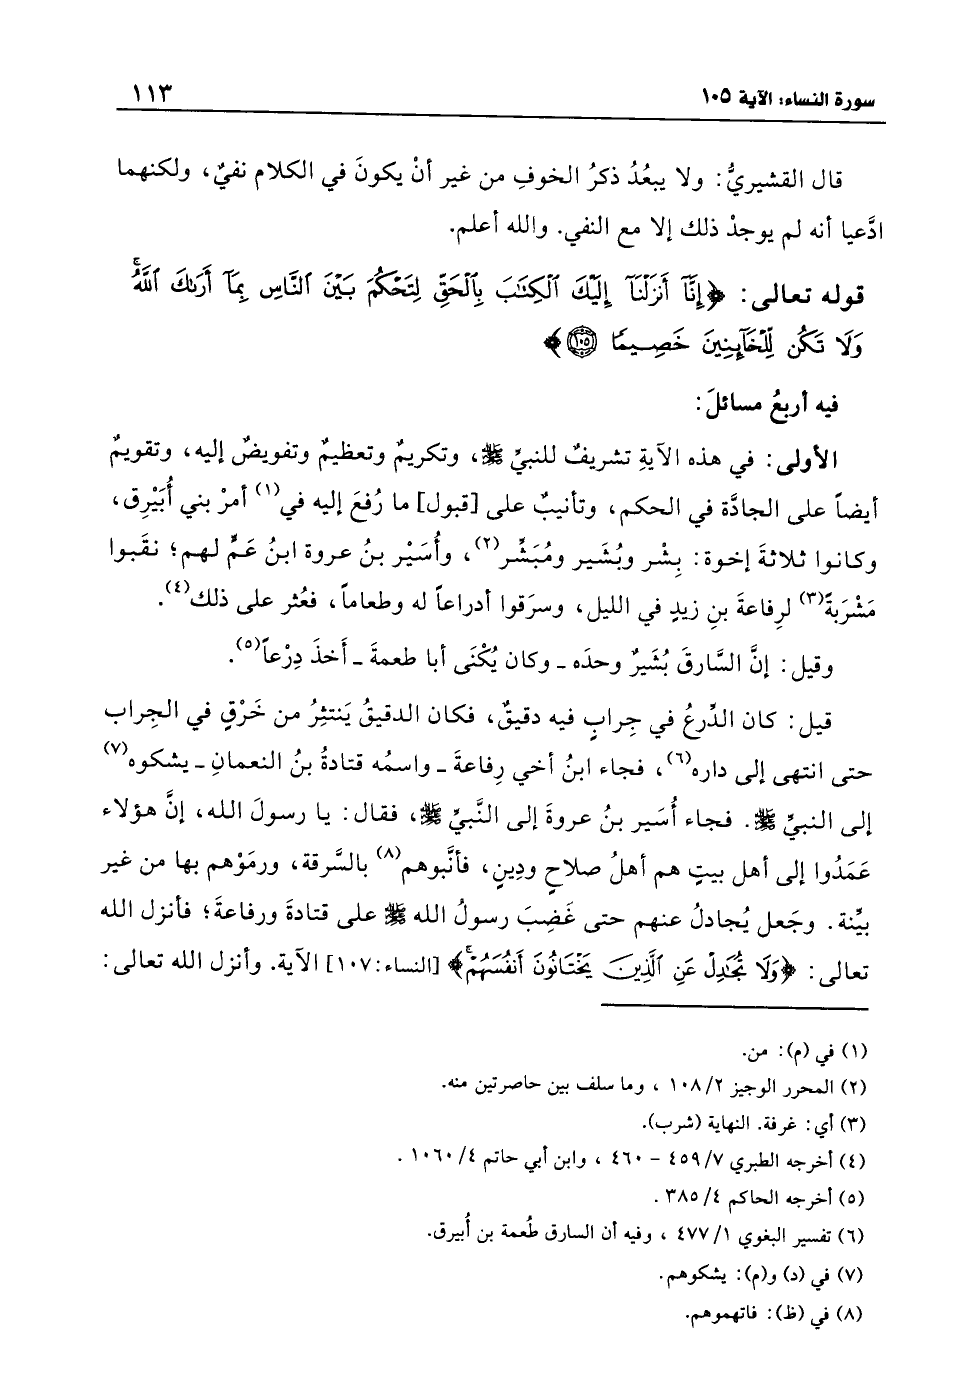 سورة النساء: الآية ١٠٥
١١٣
قال القشيريُّ: ولا يبعُدُ ذكرُ الخوفِ من غير أنْ يكونَ في الكلام نفيٌ، ولكنهما
ادَّعيا أنه لم يوجدْ ذلك إلا مع النفي. والله أعلم.
قوله تعالى: ﴿إِنَّآ أَنزَلْنَآ إِلَيْكَ ٱلْكِتَٰبَ بِٱلْحَقِّ لِتَحْكُمَ بَيْنَ ٱلنَّاسِ بِمَآ أَرَىٰكَ ٱللَّهُۚ
وَلَا تَكُن لِّلْخَآئِنِينَ خَصِيمًا ١٠٥﴾
فيه أربعُ مسائلَ:
الأولى: في هذه الآيةِ تشريفٌ للنبيِّ ﷺ، وتكريمٌ وتعظيمٌ وتفويضٌ إليه، وتقويمٌ
أيضاً على الجادَّة في الحكم، وتأنيبٌ على [قبول] ما رُفعَ إليه في(١) أمرْ بني أُبَيْرِق،
وكانوا ثلاثةَ إخوة: بِشْر وبُشَير ومُبَشِّر(٢)، وأُسَيْر بنُ عروة ابنُ عَمٍّ لهم؛ نقَبوا
مَشْرَبةً(٣) لرِفاعةَ بنِ زيدٍ في الليل، وسرَقوا أدراعاً له وطعاماً، فعُثر على ذلك(٤).
وقيل: إنَّ السَّارقَ بُشَيرٌ وحدَه ـ وكان يُكْنَى أبا طعمةَ ـ أَخذَ دِرْعاً(٥).
قيل: كان الدِّرعُ في جِرابٍ فيه دقيقٌ، فكان الدقيقُ يَنتثِرُ من خَرْقٍ في الجِراب
حتى انتهى إلى داره(٦)، فجاء ابنُ أخي رِفاعةَ ـ واسمُه قتادةُ بنُ النعمانِ ـ يشكوه(٧)
إلى النبيِّ ﷺ. فجاء أُسَير بنُ عروةَ إلى النَّبيِّ ﷺ، فقال: يا رسولَ الله، إنَّ هؤلاء
عَمَدُوا إلى أهل بيتٍ هم أهلُ صلاحٍ ودِينٍ، فأنَّبوهم(٨) بالسَّرقة، ورمَوْهم بها من غير
بيِّنة. وجَعل يُجادلُ عنهم حتى غَضِبَ رسولُ الله ﷺ على قتادةَ ورفاعةَ؛ فأنزل الله
تعالى: ﴿وَلَا تُجَٰدِلْ عَنِ ٱلَّذِينَ يَخْتَانُونَ أَنفُسَهُمْۚ﴾ [النساء: ١٠٧] الآية. وأنزل الله تعالى:
(١) في (م): من.
(٢) المحرر الوجيز ٢/ ١٠٨ ، وما سلف بين حاصرتين منه.
(٣) أي: غرفة. النهاية (شرب).
(٤) أخرجه الطبري ٧/ ٤٥٩ - ٤٦٠ ، وابن أبي حاتم ٤/ ١٠٦٠ .
(٥) أخرجه الحاكم ٤/ ٣٨٥ .
(٦) تفسير البغوي ١/ ٤٧٧ ، وفيه أن السارق طُعمة بن أُبيرق.
(٧) في (د) و(م): يشكوهم.
(٨) في (ظ): فاتهموهم.